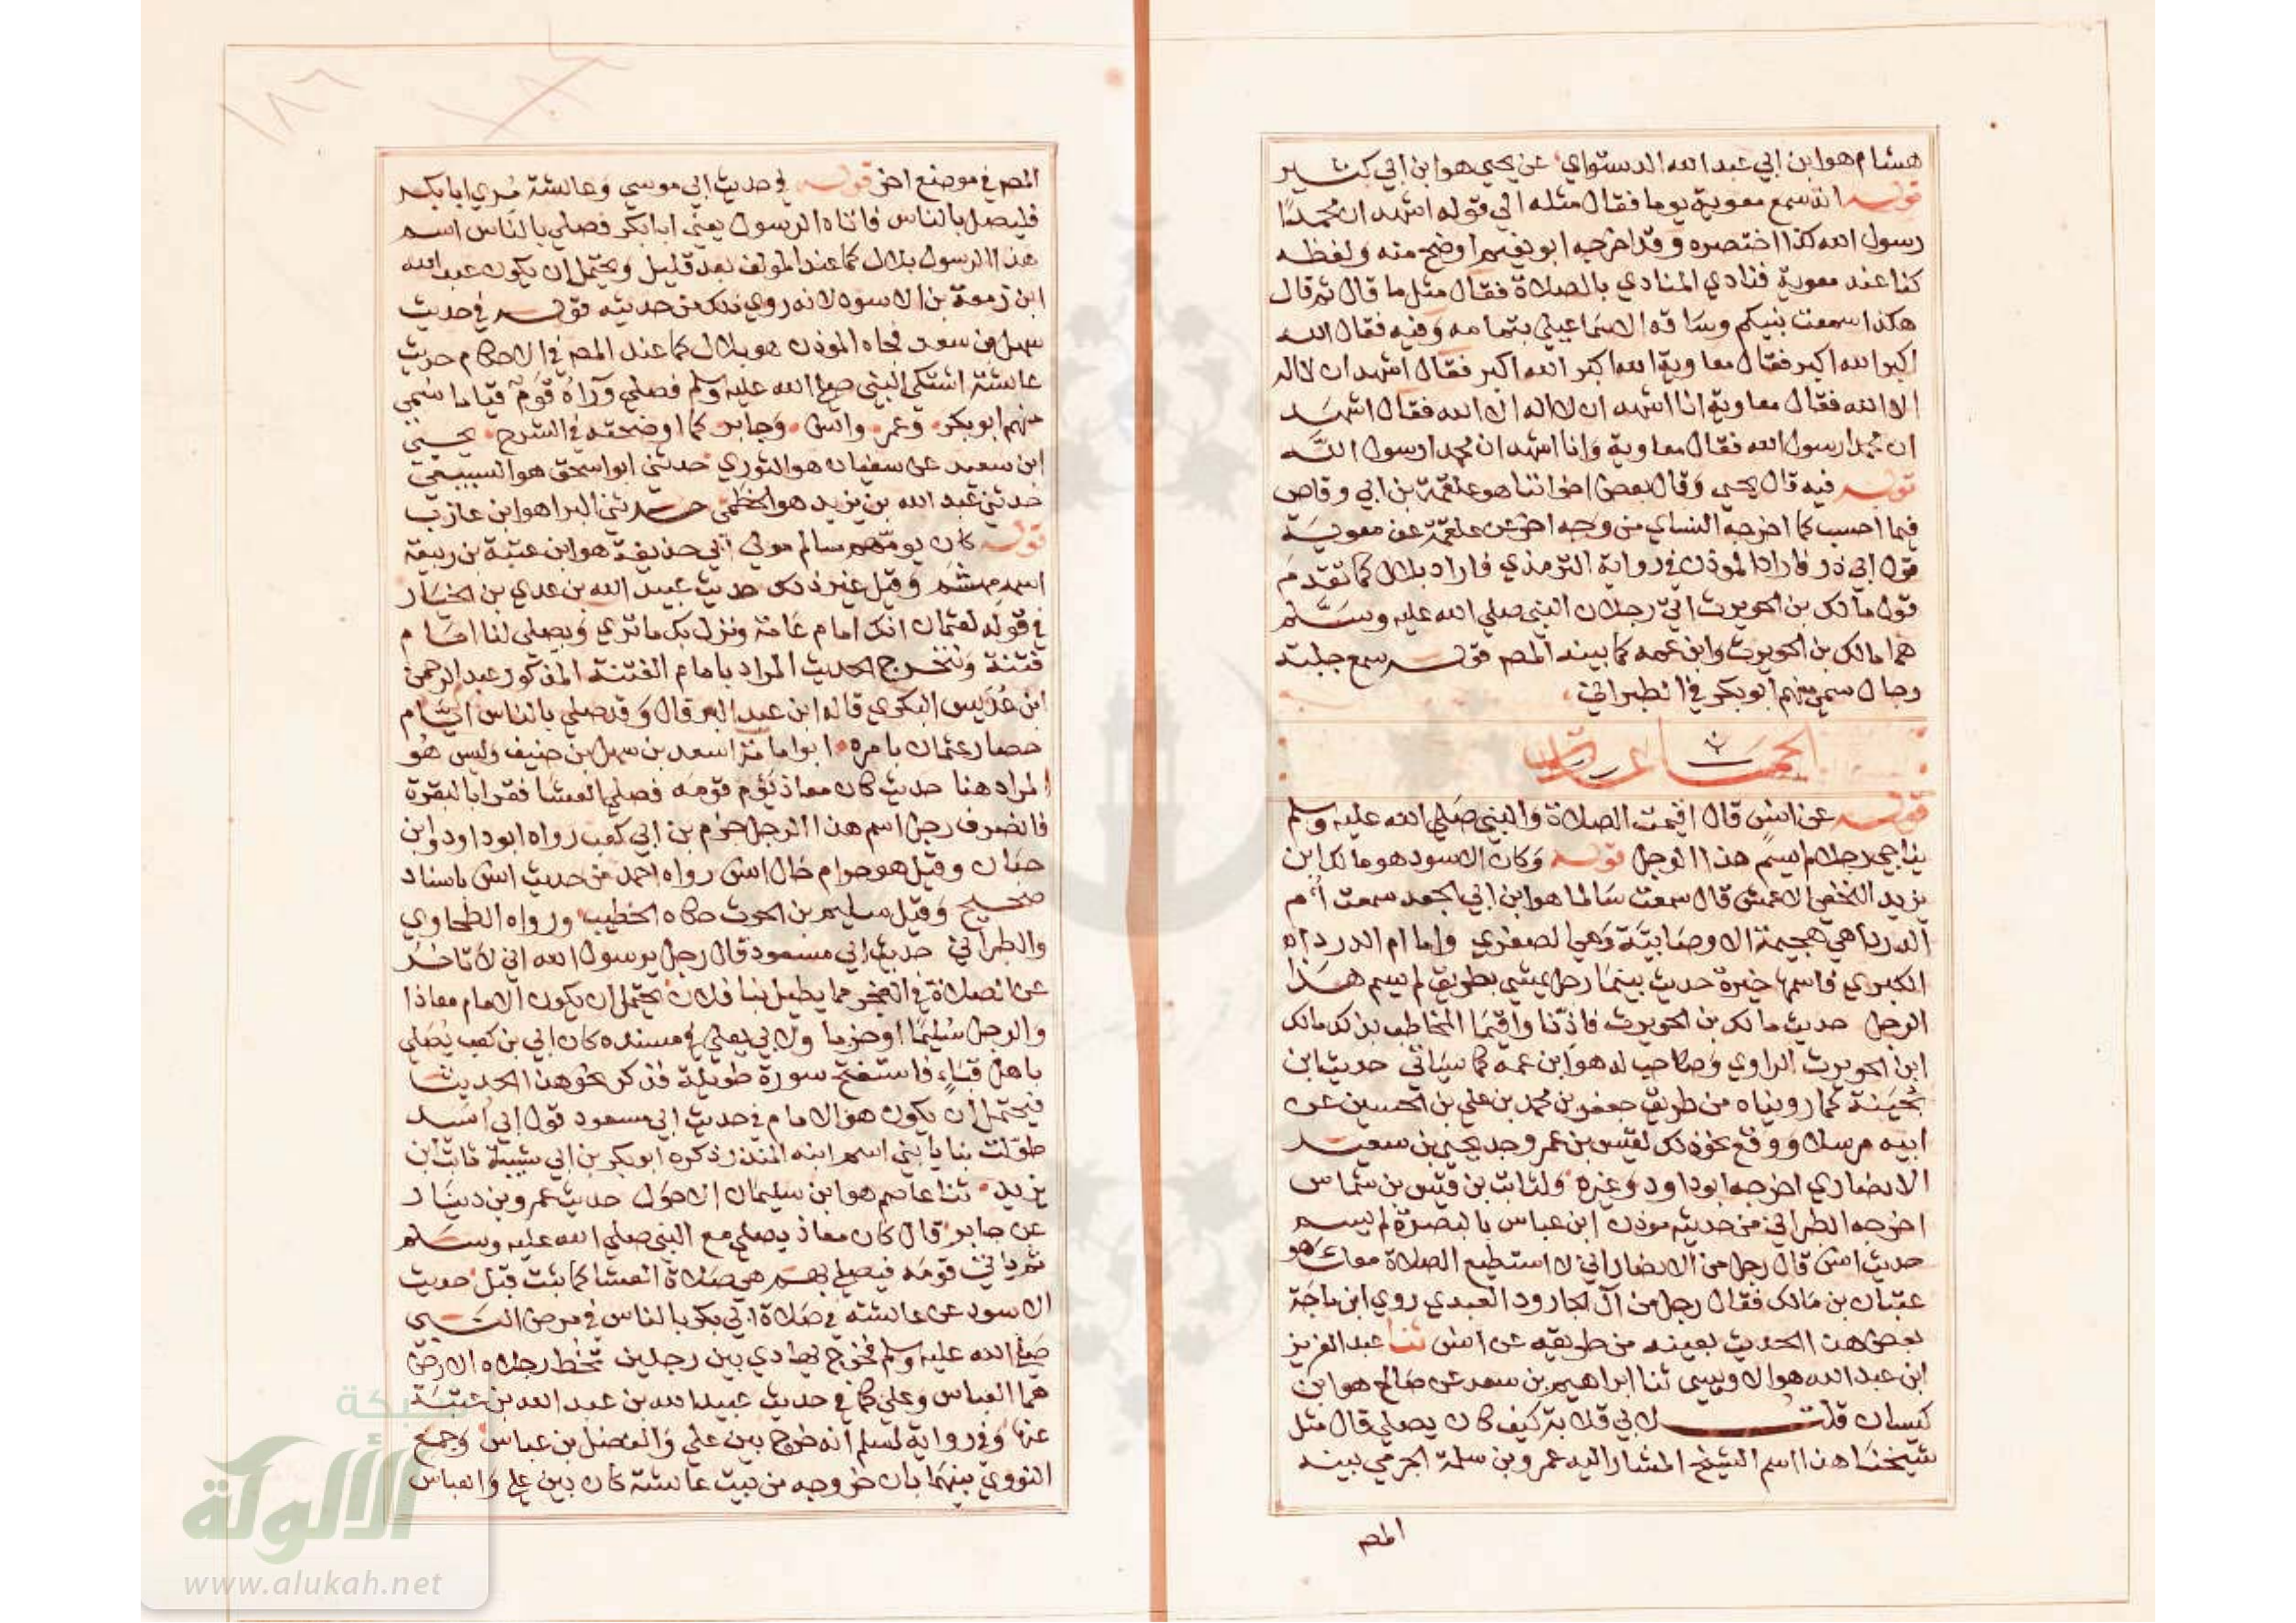 هشام هو ابن ابي عبد الله الدستواي عن يحيى هو ابن ابي كثير
قوله انه سمع معوية يوما فقال مثله الي قوله اشهد ان محمدا
رسول الله كذا اختصره وقد اخرجه ابو نعيم اوضح منه ولفظه
كنا عند معوية فنادي المنادي بالصلاة فقال مثل ما قال ثم قال
هكذا سمعت نبيكم وساقه الاسماعيلي بتمامه وفيه فقال الله
اكبر الله اكبر فقال معاوية الله اكبر الله اكبر فقال اشهد ان لا اله
الا الله فقال معاوية انا اشهد ان لا اله الا الله فقال اشهد
ان محمدا رسول الله فقال معاوية وانا اشهد ان محمدا رسول الله
قوله فيه قال يحيي وقال بعض اخواننا هو علقمة بن ابي وقاص
فيما احسب كما اخرجه النساي من وجه اخر عن علقمة عن معوية
قول ابي ذر فاراد الموذن في رواية الترمذي فاراد بلال كما تقدم
قول مالك بن الحويرث اتي رجلان النبي صلي الله عليه وسلم
هما مالك بن الحويرث وابن عمه كما بينه المصـ قوله سمع جلبة
رجال سمي منهم ابو بكر في الطبراني
الجماعة
قوله عن انس قال اقيمت الصلاة والنبي صلي الله عليه وسلم
يناجي رجلا لم يسم هذا الرجل قوله وكان الاسود هو مالك ابن
يزيد النخعي الاعمش قال سمعت سالما هو ابن ابي الجعد سمعت ام
الدرداء هي هجيمة الاوصابية وهي الصغري واما ام الدرداء
الكبري فاسمها خيرة حديث بينما رجل يمشي بطريق لم يسم هذا
الرجل حديث مالك بن الحويرث فاذنا واقيما المخاطب بذلك مالك
ابن الحويرث الراوي وصاحب له هو ابن عمه كما سياتي حديث ابن
بحينة كما رويناه من طريق جعفر بن محمد بن علي بن الحسين عن
ابيه مرسلا ووقع نحو ذلك لقيس بن عمر وجد يحيي بن سعيد
الانصاري اخرجه ابو داود وغيره ولثابت بن قيس بن شماس
اخرجه الطبراني من حديثه موذن ابن عباس بالبصرة لم يسم
حديث انس قال رجل من الانصار اني لا استطيع الصلاة معك هو
عتبان بن مالك فقال رجل من آل الجارود العبدي روي ابن ماجة
بعض هذا الحديث بعينه من طريقه عن انس ثنا عبد العزيز
ابن عبد الله هو الاويسي ثنا ابراهيم بن سعد عن صالح هو ابن
كيسان قلت لابي قلابة كيف كان يصلي قال مثل
شيخنا هذا اسم الشيخ المشار اليه عمرو بن سلمة الجرمي بينه
المصـ
المصـ في موضع اخر قوله في حديث ابي موسي وعائشة مري ابا بكر
فليصل بالناس فاتاه الرسول يعني ابا بكر فصلي بالناس اسم
هذا الرسول بلال كما عند المولف بعد قليل ويحتمل ان يكون عبد الله
ابن زمعة بن الاسود لانه روي ذلك من حديثه قوله في حديث
سهل بن سعد فجاه الموذن هو بلال كما عند المصـ في الاحكام حديث
عائشة اشتكي النبي صلي الله عليه وسلم فصلي وراه قوم قياما سمي
منهم ابو بكر وعمر وانس وجابر كما اوضحته في الشرح يحيي
ابن سعيد عن سفيان هو الثوري حدثني ابو اسحق هو السبيعي
حدثني عبد الله بن يزيد هو الخطمي حدثني البرا هو ابن عازب
قوله كان يومهم سالم مولي ابي حذيفة هو ابن عتبة بن ربيعة
اسمه هشم وقيل غير ذلك حديث عبيد الله بن عدي بن الخيار
في قوله لعثمان انك امام عامة ونزل بك ما تري ويصلي لنا امام
فتنة ونتحرج الحديث المراد بامام الفتنة المذكور عبد الرحمن
ابن عديس البلوي قاله ابن عبد البر قال وقد صلي بالناس ايام
حصار عثمان بامره ابو امامة اسعد بن سهل بن حنيف وليس هو
المراد هنا حديث كان معاذ يوم قومه فصلي العشا فقرا بالبقرة
فانصرف رجل اسم هذا الرجل حزم بن ابي كعب رواه ابو داود وابن
حبان وقيل هو حرام خال انس رواه احمد من حديث انس باسناد
صحيح وقيل سليم بن الحرث حكاه الخطيب ورواه الطحاوي
والطبراني حديث ابي مسعود قال رجل يرسول الله اني لاتاخر
عن الصلاة في الفجر مما يطيل بنا فلان يحتمل ان يكون الامام معاذا
والرجل سليما او حزما ولابي يعلي في مسنده كان ابي بن كعب يصلي
باهل قباء فاستفتح سورة طويلة فذكر نحو هذا الحديث
فيحتمل ان يكون هو الامام في حديث ابي مسعود قول ابي اسد
طولت بنا يا بني اسم ابنه المنذر ذكره ابو بكر بن ابي شيبة ثابت ابن
يزيد ثنا عاصم هو ابن سليمان الاحول حديث عمرو بن دينار
عن جابر قال كان معاذ يصلي مع النبي صلي الله عليه وسلم
ثم ياتي قومه فيصلي بهم هي صلاة العشا كما بينت قبل حديث
الاسود عن عائشة في صلاة ابي بكر بالناس في مرض النبي
صلي الله عليه وسلم فخرج يهادي بين رجلين تخط رجلاه الارض
هما العباس وعلي كما في حديث عبيد الله بن عبد الله بن عتبة
عنها وفي رواية لمسلم انه خرج بين علي والفضل بن عباس وجمع
النووي بينهما بان خروجه من بيت عائشة كان بين علي والعباس
شبكة
الألوكة
www.alukah.net